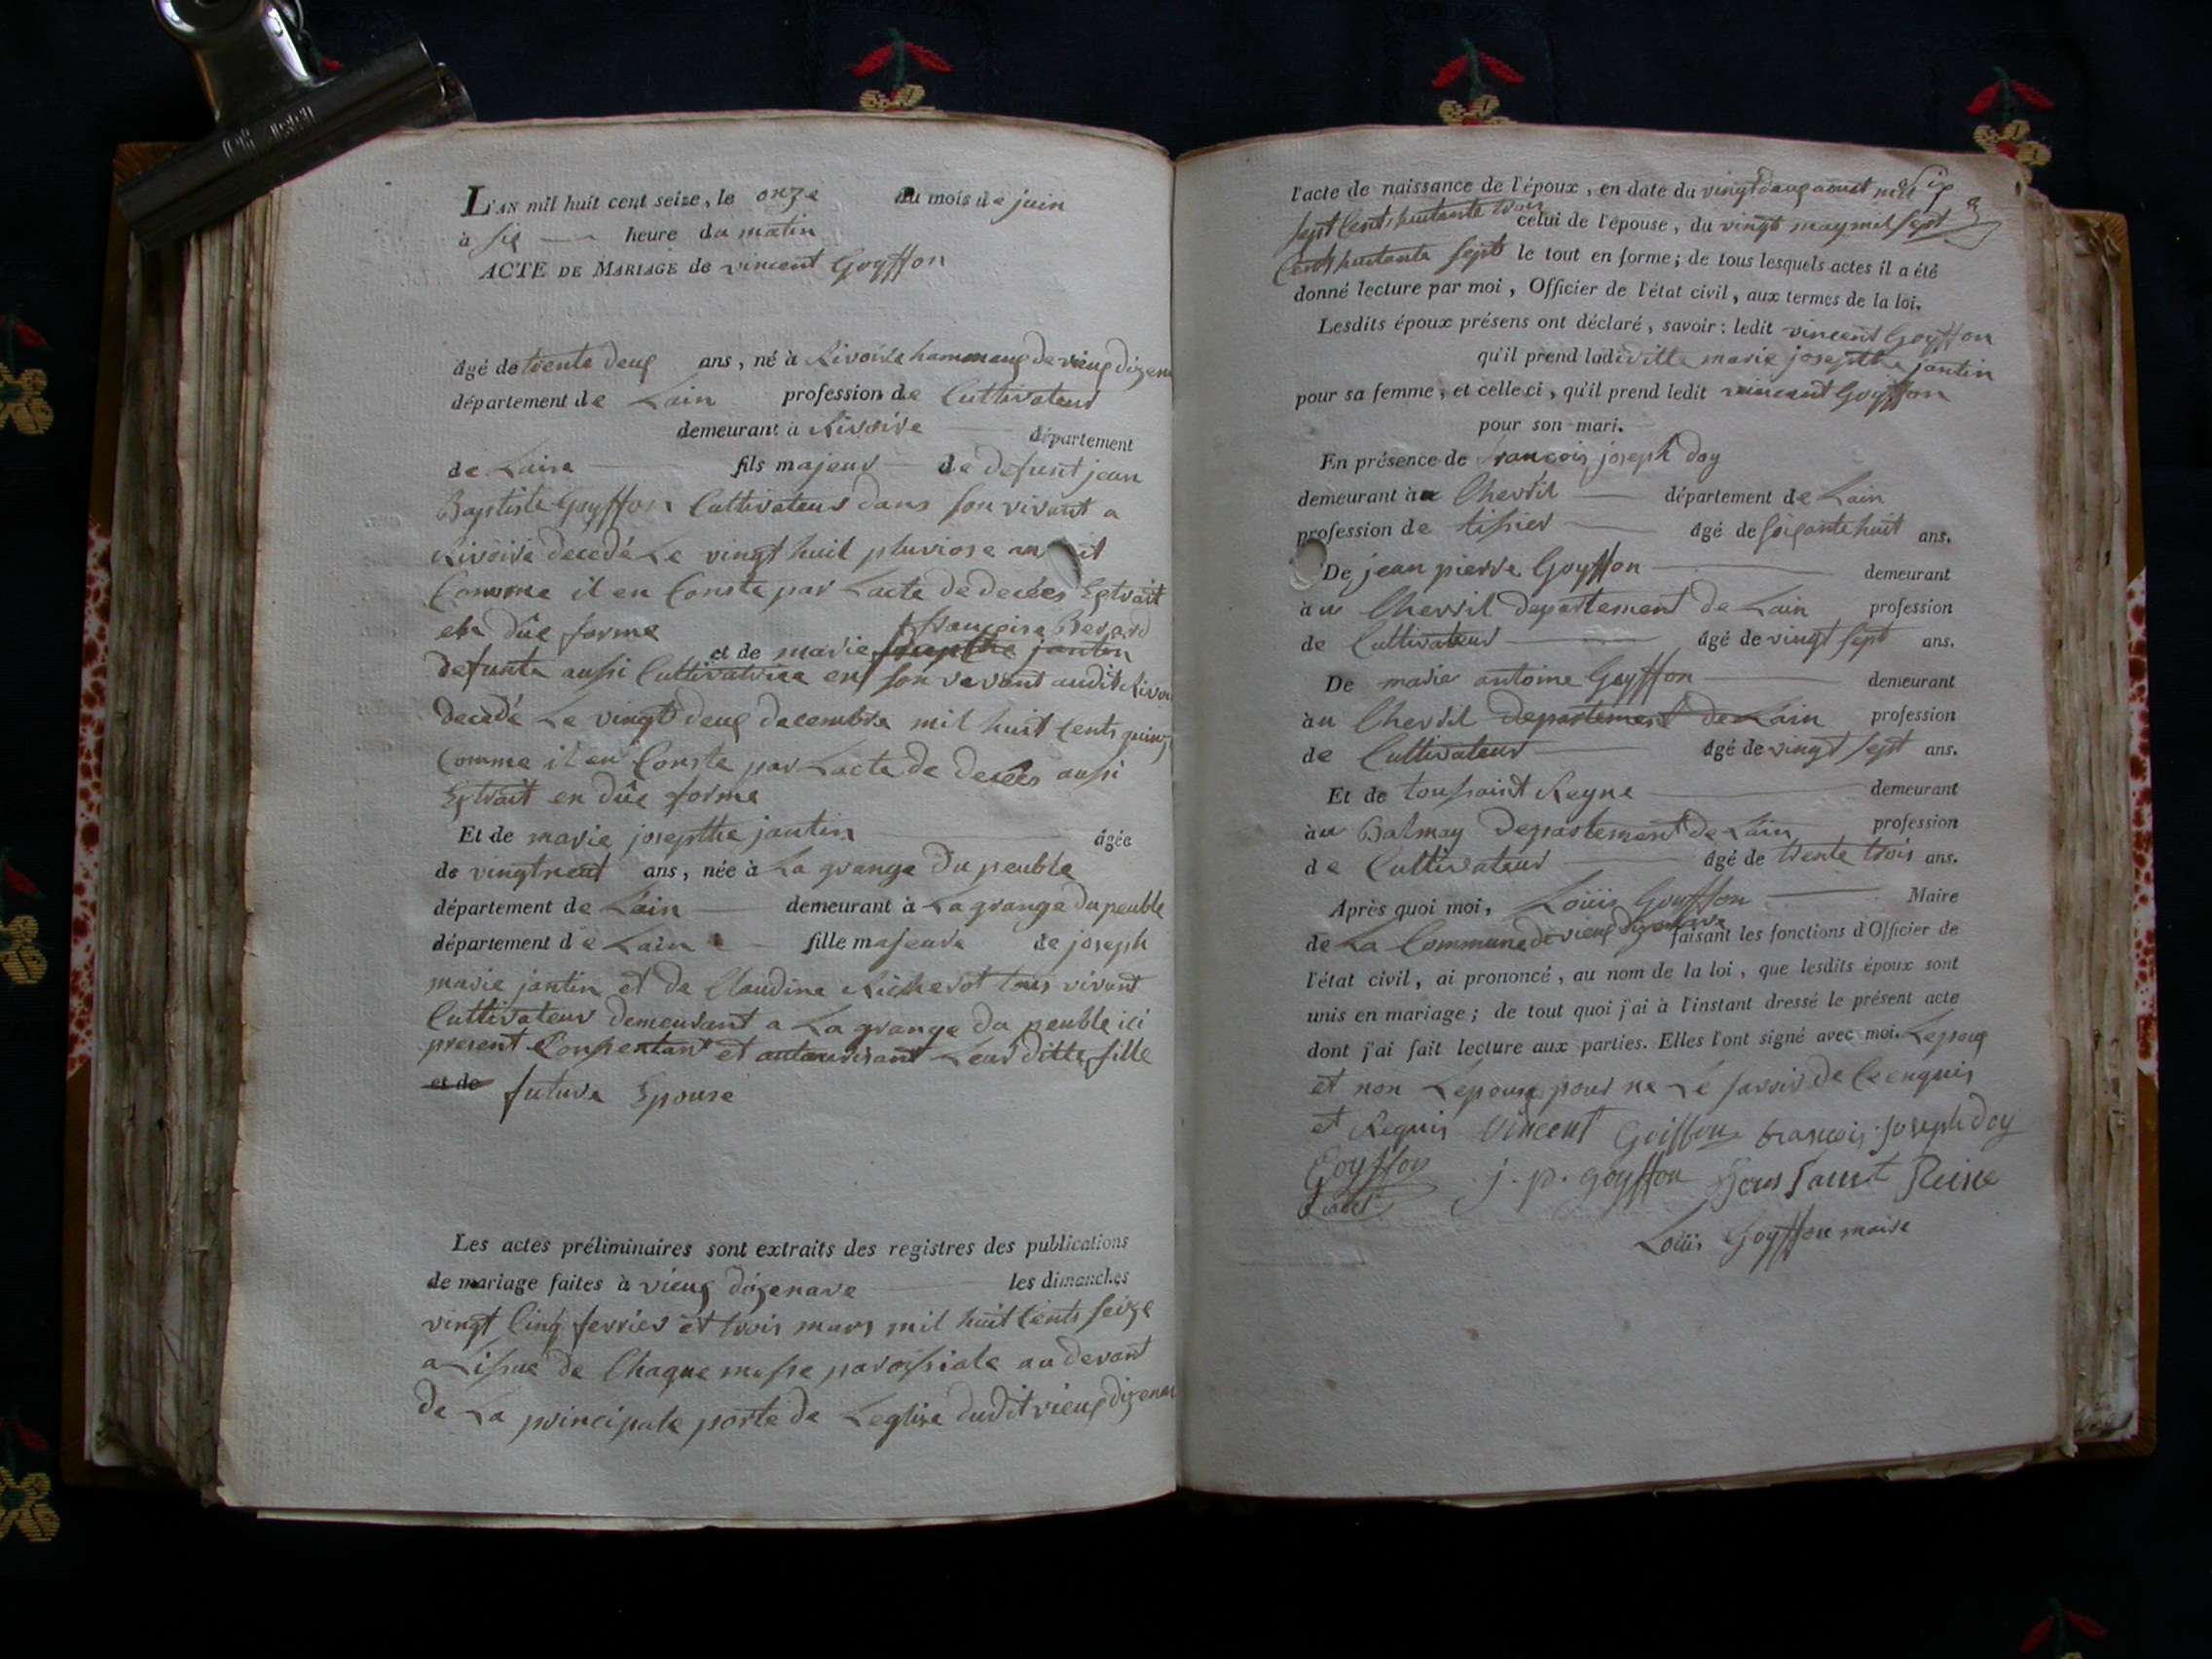 L'AN mil huit cent seize, le onze du mois de juin
à six heure du matin
ACTE DE MARIAGE de vincent Goyffon
âgé de trente deux ans, né à Rivoire hammeaux de vieux dizena
département de Lain profession de Cultivateur
demeurant à Rivoire département
de Laine fils majeur de defunt jean
Baptiste Goyffon Cultivateur dans son vivant a
Rivoire decedé Le vingt huit pluviose an it
Comme il en Conste par Lacte de decées Extrait
en dûe forme françoise Berard
et de marie josepthe jantin
defunte aussi Cultivatrice en son vevant audit Rivoi
decedé Le vingt deux decembre mil huit cents quinz
Comme il en Conste par Lacte de decées aussi
Extrait en dûe forme
Et de marie josepthe jantin âgée
de vingtneuf ans, née à La grange du peuble
département de Lain demeurant à La grange du peuble
département de Lain fille majeure de joseph
marie jantin et de Claudine Richerot tous vivant
Cultivateur demeurant a La grange du peuble ici
present Consentant et autaurisant Leur ditte fille
et de future Epouse
Les actes préliminaires sont extraits des registres des publications
de mariage faites à vieux dizenave les dimanches
vingt Cinq fevrier et trois mars mil huit Cents seize
a Lissue de Chaque messe paroissiale au devant
de La principale porte de Leglise dudit vieux dizenav
l'acte de naissance de l'époux, en date du vingt deux aoust mil
sept Cents huitante trois celui de l'épouse, du vingt may mil sept
Cents huitante sept le tout en forme; de tous lesquels actes il a été
donné lecture par moi, Officier de l'état civil, aux termes de la loi.
Lesdits époux présens ont déclaré, savoir: ledit vincent Goyffon
qu'il prend ladiville marie josepthe jantin
pour sa femme, et celle ci, qu'il prend ledit vincent Goyffon
pour son mari.
En présence de francois joseph doy
demeurant àu Chevril département de Lain
profession de tissier âgé de soixante huit ans.
De jean pierre Goyffon demeurant
àu Chevril departement de Lain profession
de Cultivateur âgé de vingt sept ans.
De marie antoine Goyffon demeurant
àu Chevril departement de Lain profession
de Cultivateur âgé de vingt sept ans.
Et de toussaint Reyne demeurant
àu Balmay departement de Lain profession
de Cultivateur âgé de trente trois ans.
Après quoi moi, Loüis Goyffon Maire
de La Commune de vieux dizenave faisant les fonctions d'Officier de
l'état civil, ai prononcé, au nom de la loi, que lesdits époux sont
unis en mariage; de tout quoi j'ai à l'instant dressé le présent acte
dont j'ai fait lecture aux parties. Elles l'ont signé avec moi. Lepoux
et non Lepouse pour ne Le savoir de Ce enquis
et Requis Vincent Goiffon francois joseph doy
Goyffon j. p. goyffon Tous Saint Reine
Loüis Goyffon maire